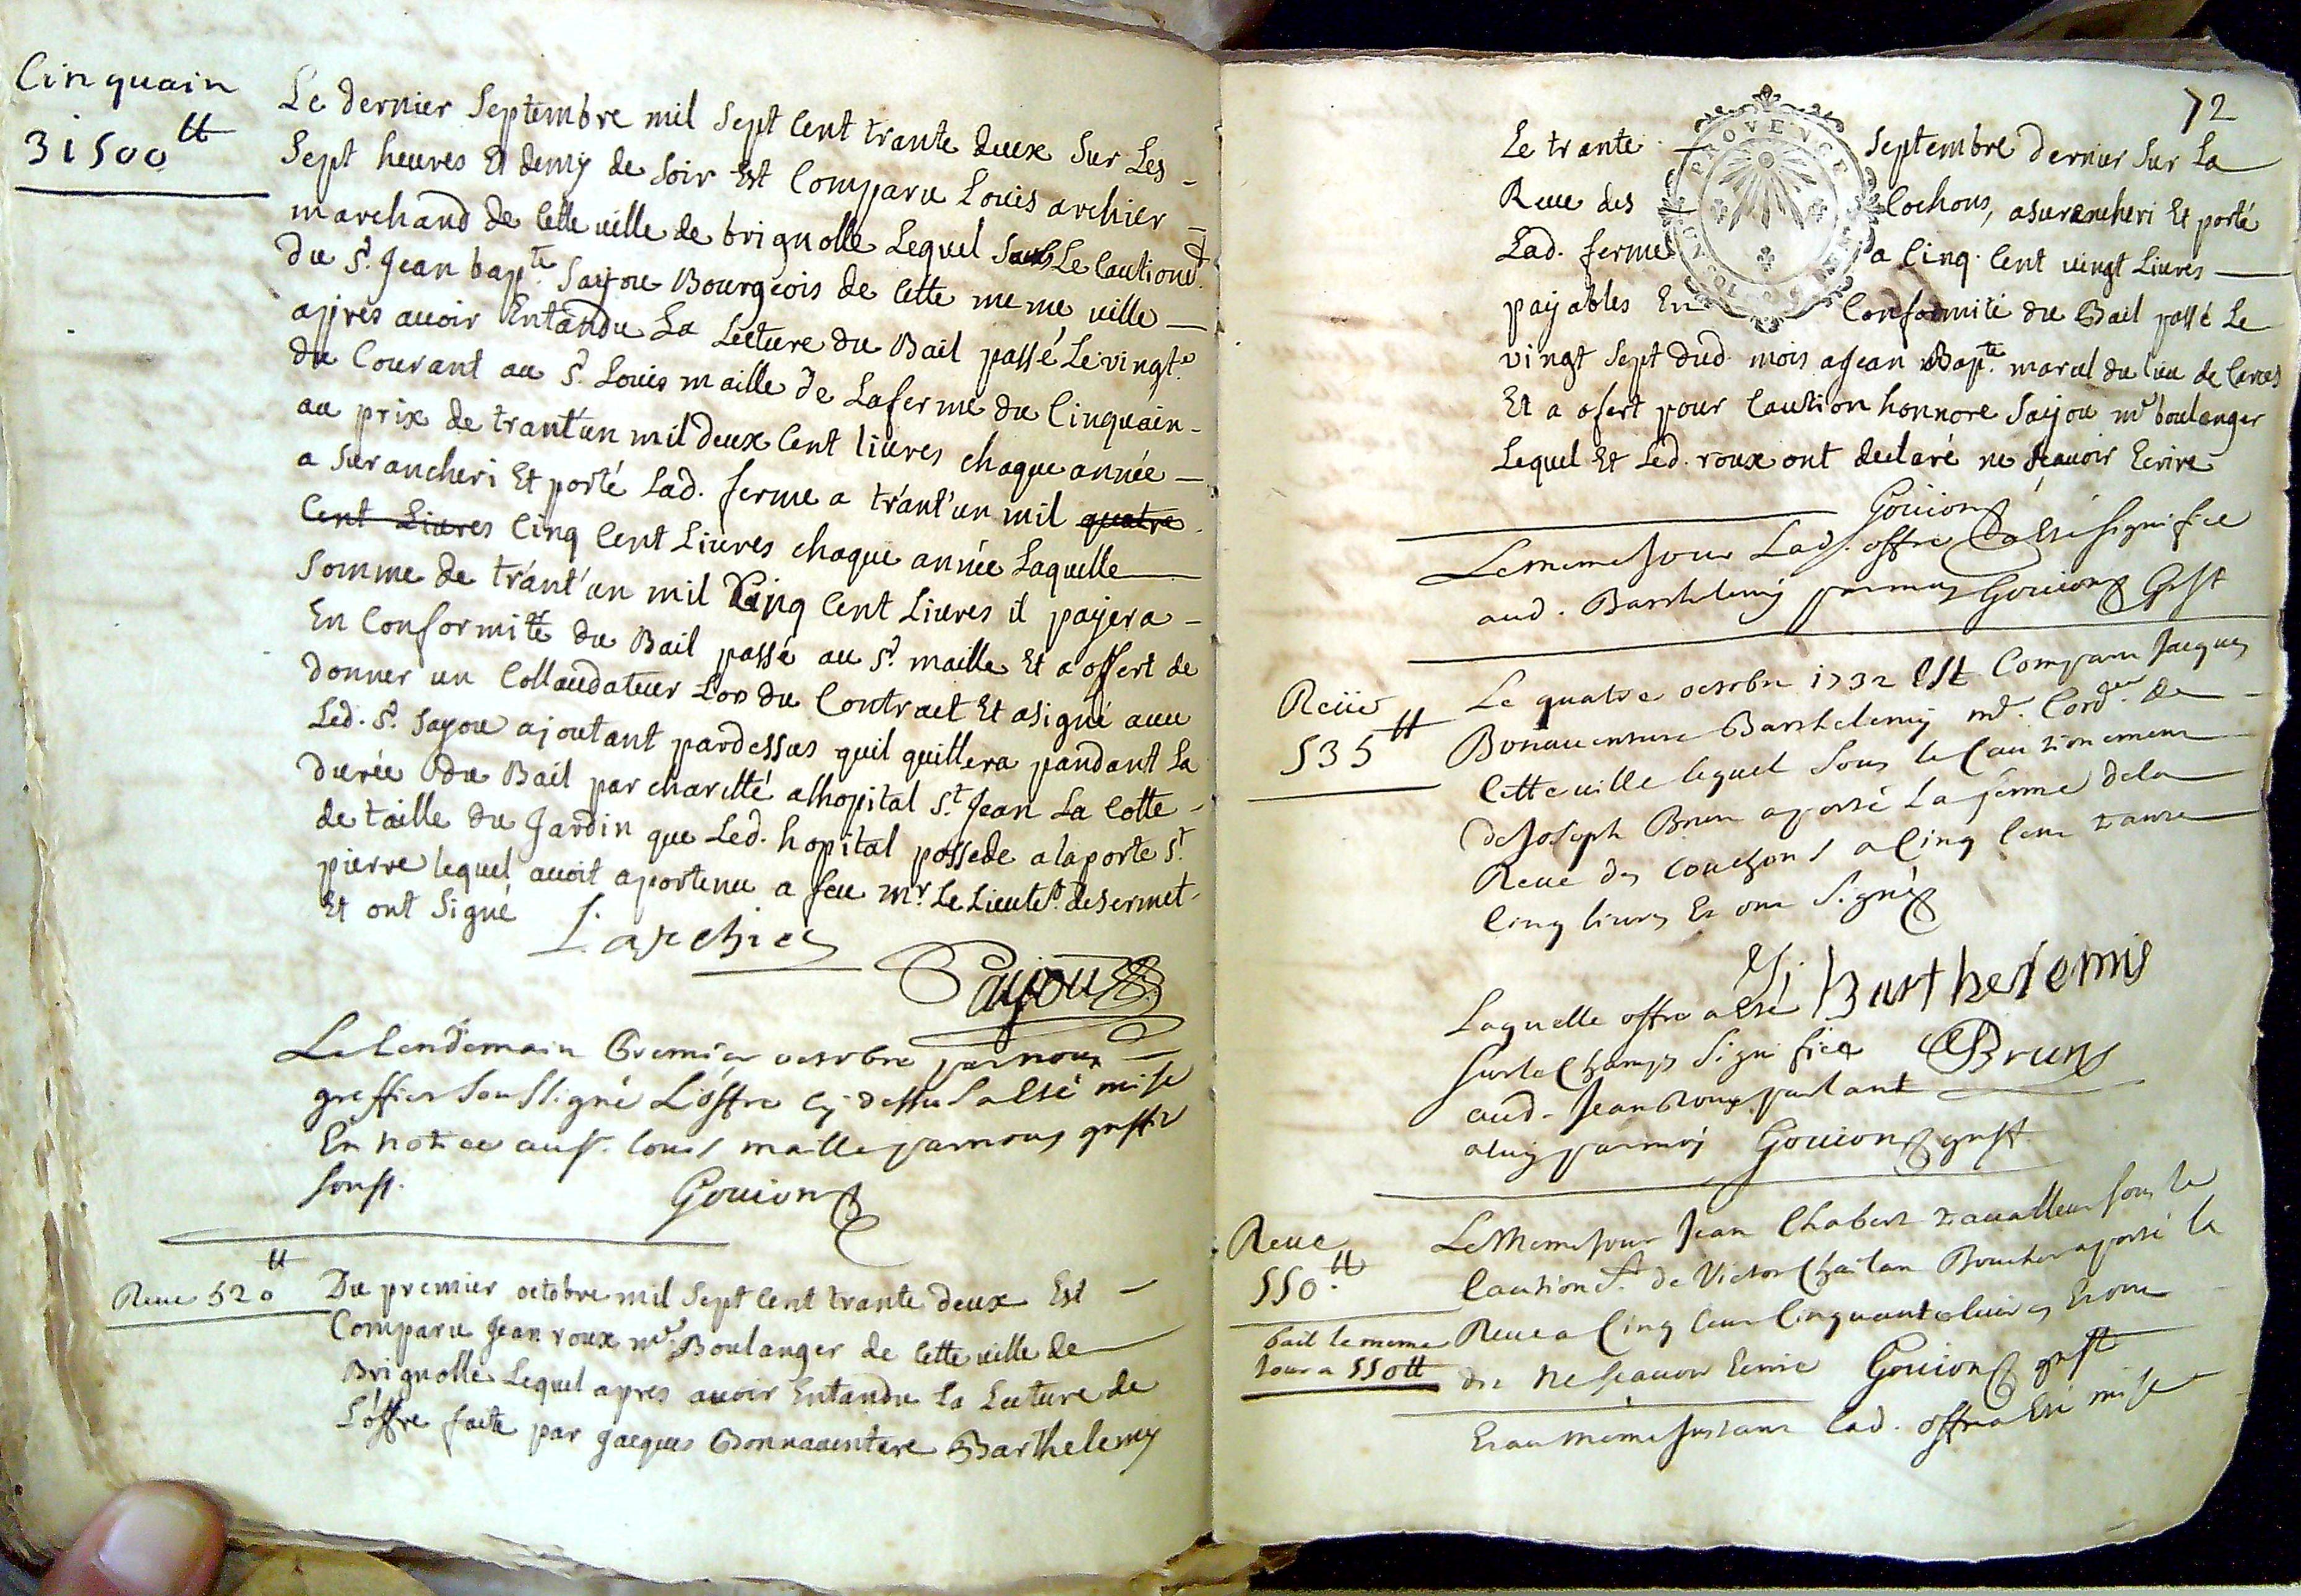 Cinquain
31500 ₶
Le dernier Septembre mil Sept Cent trante deux Sur Les
Sept heures Et demy de Soir Est Comparu Louis archier
marchand de Cette ville de brignolle Lequel Sous Le Cautionᵗ
du Sʳ. Jean bapᵗᵉ. Sajou Bourgeois de Cette meme ville
apres avoir Entandu La Lecture du Bail passé Le vingtᵉ
du Courant au Sʳ. Louis maille de Laferme du Cinquain
au prix de trant'un mil deux Cent livres chaque année
a Surancheri Et porté Lad. ferme a trant'un mil quatre
Cent Livres Cinq Cent Livres chaque année Laquelle
Somme de trant'un mil Cinq Cent Livres il payera
En Conformité du Bail passé au Sʳ. maille Et a offert de
donner un Collaudateur Lors du Contract Et a signé avec
Led. Sʳ. Sajou ajoutant pardessus quil quittera pandant La
durée du Bail par charitté a lhopital Sᵗ. Jean La Cotte
de taille du Jardin que Led. hopital possede a la porte Sᵗ.
pierre lequel avoit apartenu a feu Mʳ. Le Lieutetᵗ. desermet
Et ont Signé
L. archier
Sajou
Le lendemain Premier octobre par nous
greffier Soussigné L'offre cy dessus a esté mise
En notice au Sʳ. Louis maille par nous greffʳ
Souss.
Gouion
Reve 520 ₶
Du premier octobre mil Sept Cent trante deux Est
Comparu Jean roux mʳ Boulanger de Cette ville de
Brignolle Lequel apres avoir Entandu La Lecture de
L'offre faite par Jacques Bonnaventure Barthelemy
72
PROVENCE
Le trante Septembre dernier Sur La
Reve des Cochons, a surancheri Et porté
Lad. ferme a Cinq Cent vingt Livres
payables En Conformité du Bail passé Le
vingt Sept dud. mois a Jean Bapᵗᵉ. marcel du lieu de Carces
Et a ofert pour Caution honnore Sajou mʳ boulanger
Lequel Et Led. roux ont declaré ne Scavoir Ecrire
Gouion
Le meme Jour Lad. offre a esté signifiee
aud. Barthelemy par moy Gouion Greff
Reve
535 ₶
Le quatre octobre 1732 Est Comparu Jacques
Bonaventure Barthelemy mᵉ. Cordʳ. de
Cette ville lequel Sous le Cautionnement
de Joseph Brun a porté La ferme de la
Reve des Couchons a Cinq Cent trante
Cinq livres Et ont Signé
J. j. Barthelemis
Laquelle offre a esté
Sur le Champ Signifiee
Brun
aud. Jean Roux parlant
a luy par moy Gouion greff.
Reve
550. ₶
Le Meme Jour Jean Chabert travailleur Sous le
Cautionᵗ. de Victor Chailan Boucher a porté la
bail le meme
Jour a 550 ₶
Reve a Cinq Cent Cinquante livres Et ont
dit ne Scavoir Ecrire Gouion greff
Et au meme Instant Lad. offre a Esté mise